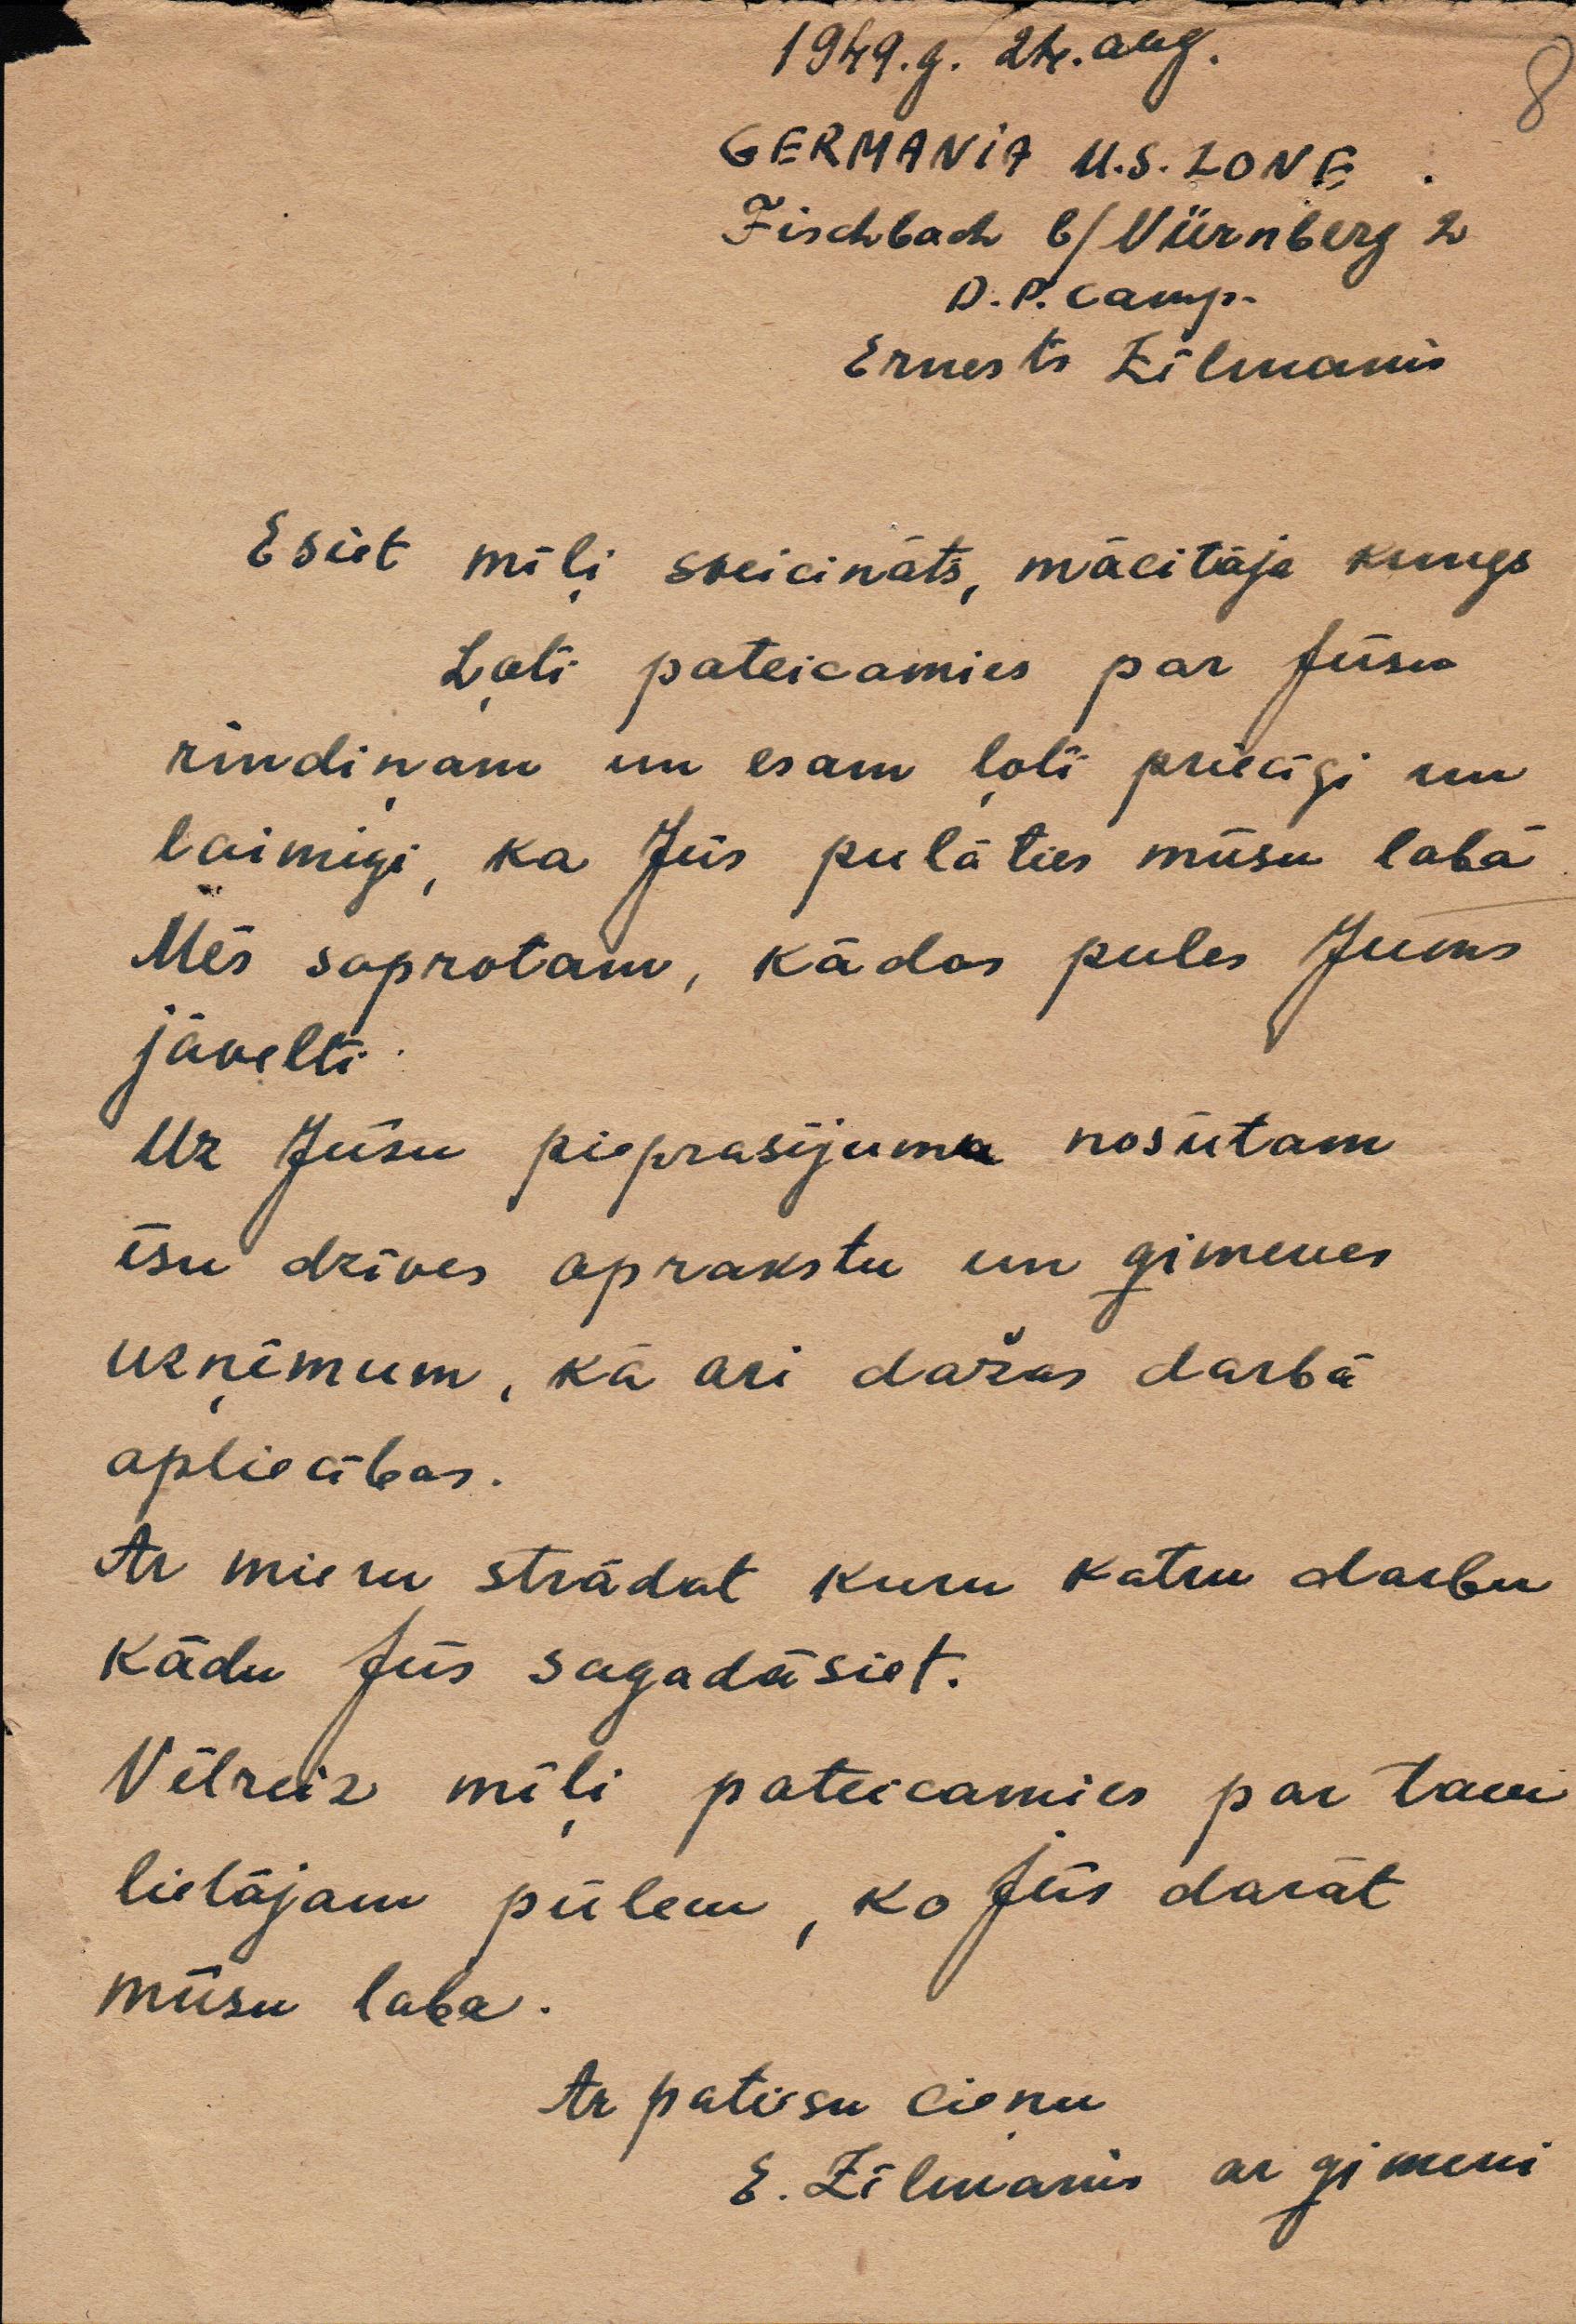 8
1949.g. 24. aug.
GERMANiA U.S. ZONE.
Fischbach b/Nürnberg 2
D.P. camp.
Ernests Zīlmanis
Esiet mīļi sveicināts, mācitāja kungs
Ļoti pateicamies par Jūsu
rindiņam un esam ļoti priecīgi un
laimigi, ka Jūs pulāties mūsu labā
Mēs saprotam, kādas pules Jums
jāvelti.
Uz Jūsu pieprasījumu nosūtam
īsu dzīves aprakstu un gimenes
uzņēmum, kā ari dažas darbā
apliecības.
Ar mieru strādat kuru katru darbu
kādu Jūs sagadāsiet.
Vēlreiz mīļi pateicamies par tam
lielājam pūlem, ko Jūs darāt
mūsu laba.
Ar patiesu cieņu
E. Zīlmanis ar gimeni